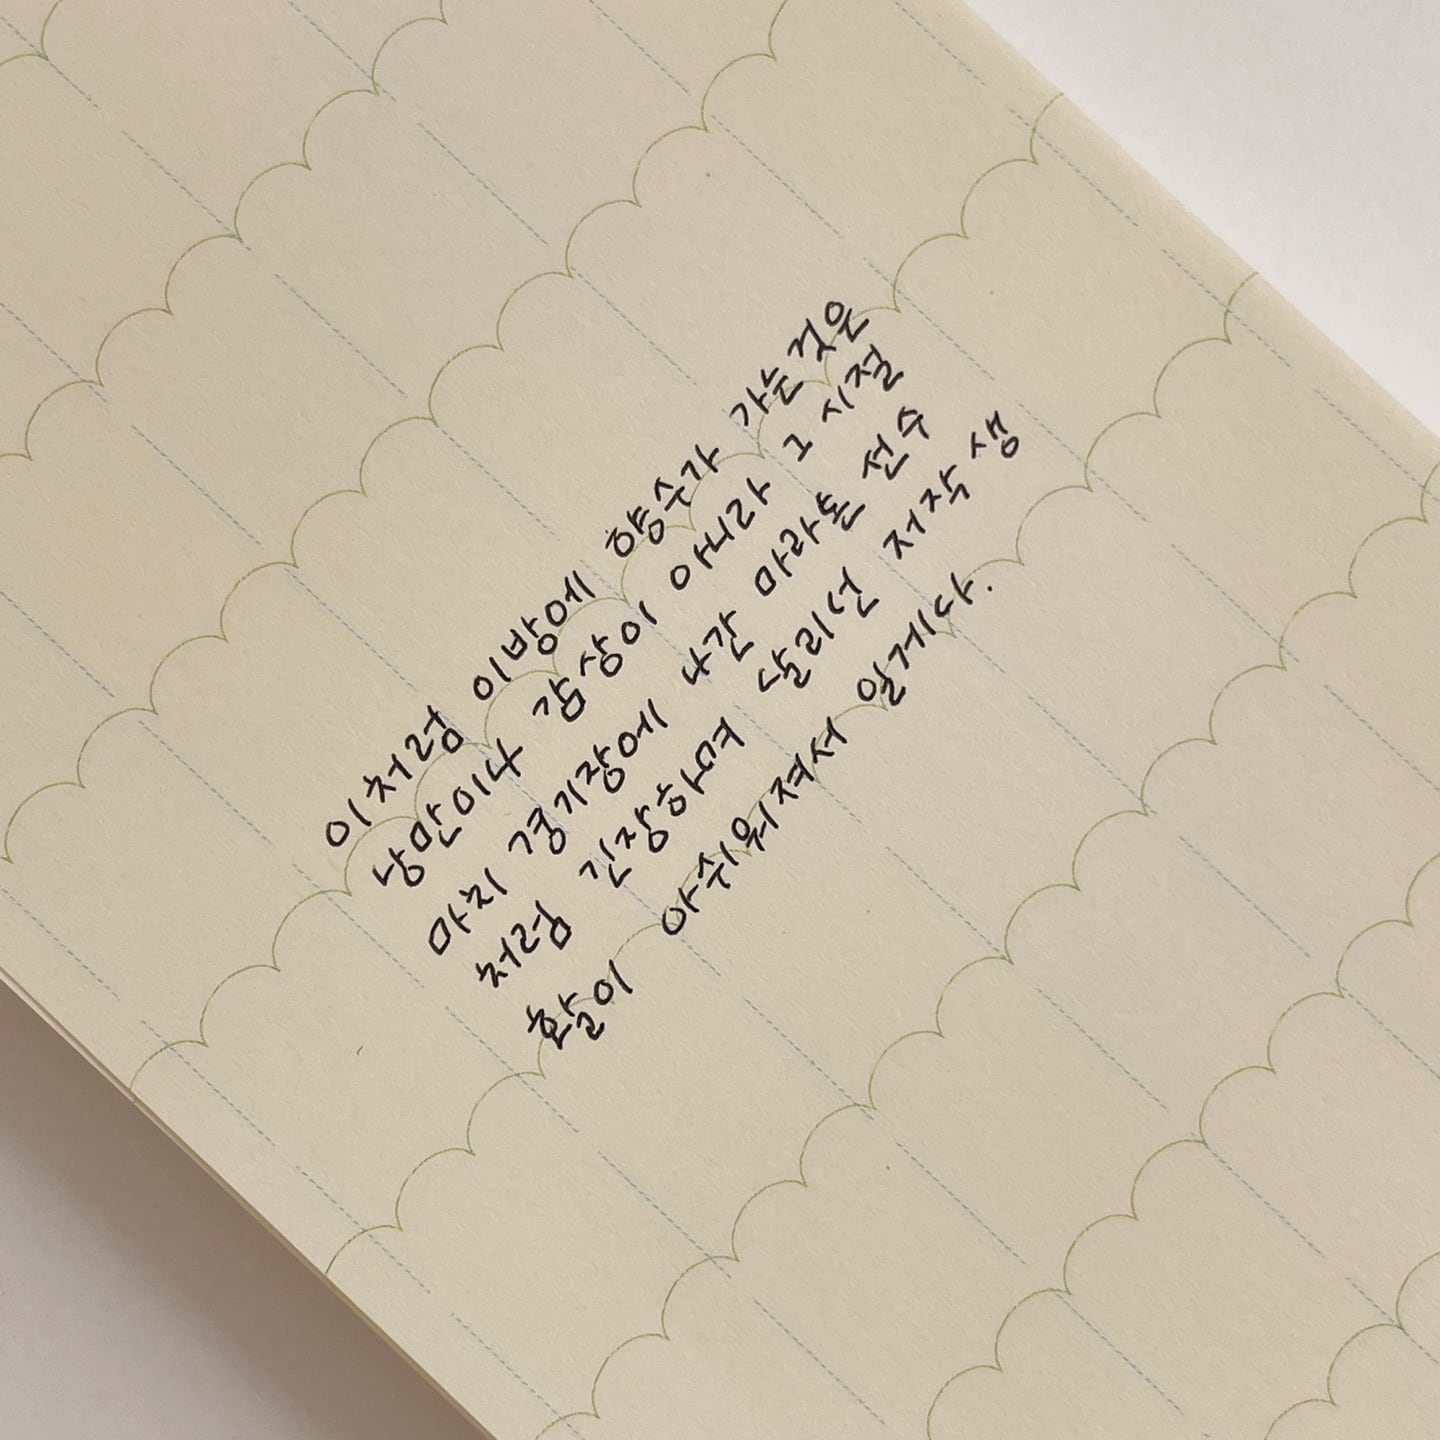 이처럼 이방에 향수가 가는것은
낭만이나 감상이 아니라 그 시절
마치 경기장에 나간 마라톤 선수
처럼 긴장하며 달리던 저작 생
활이 아쉬워져서 일게다.